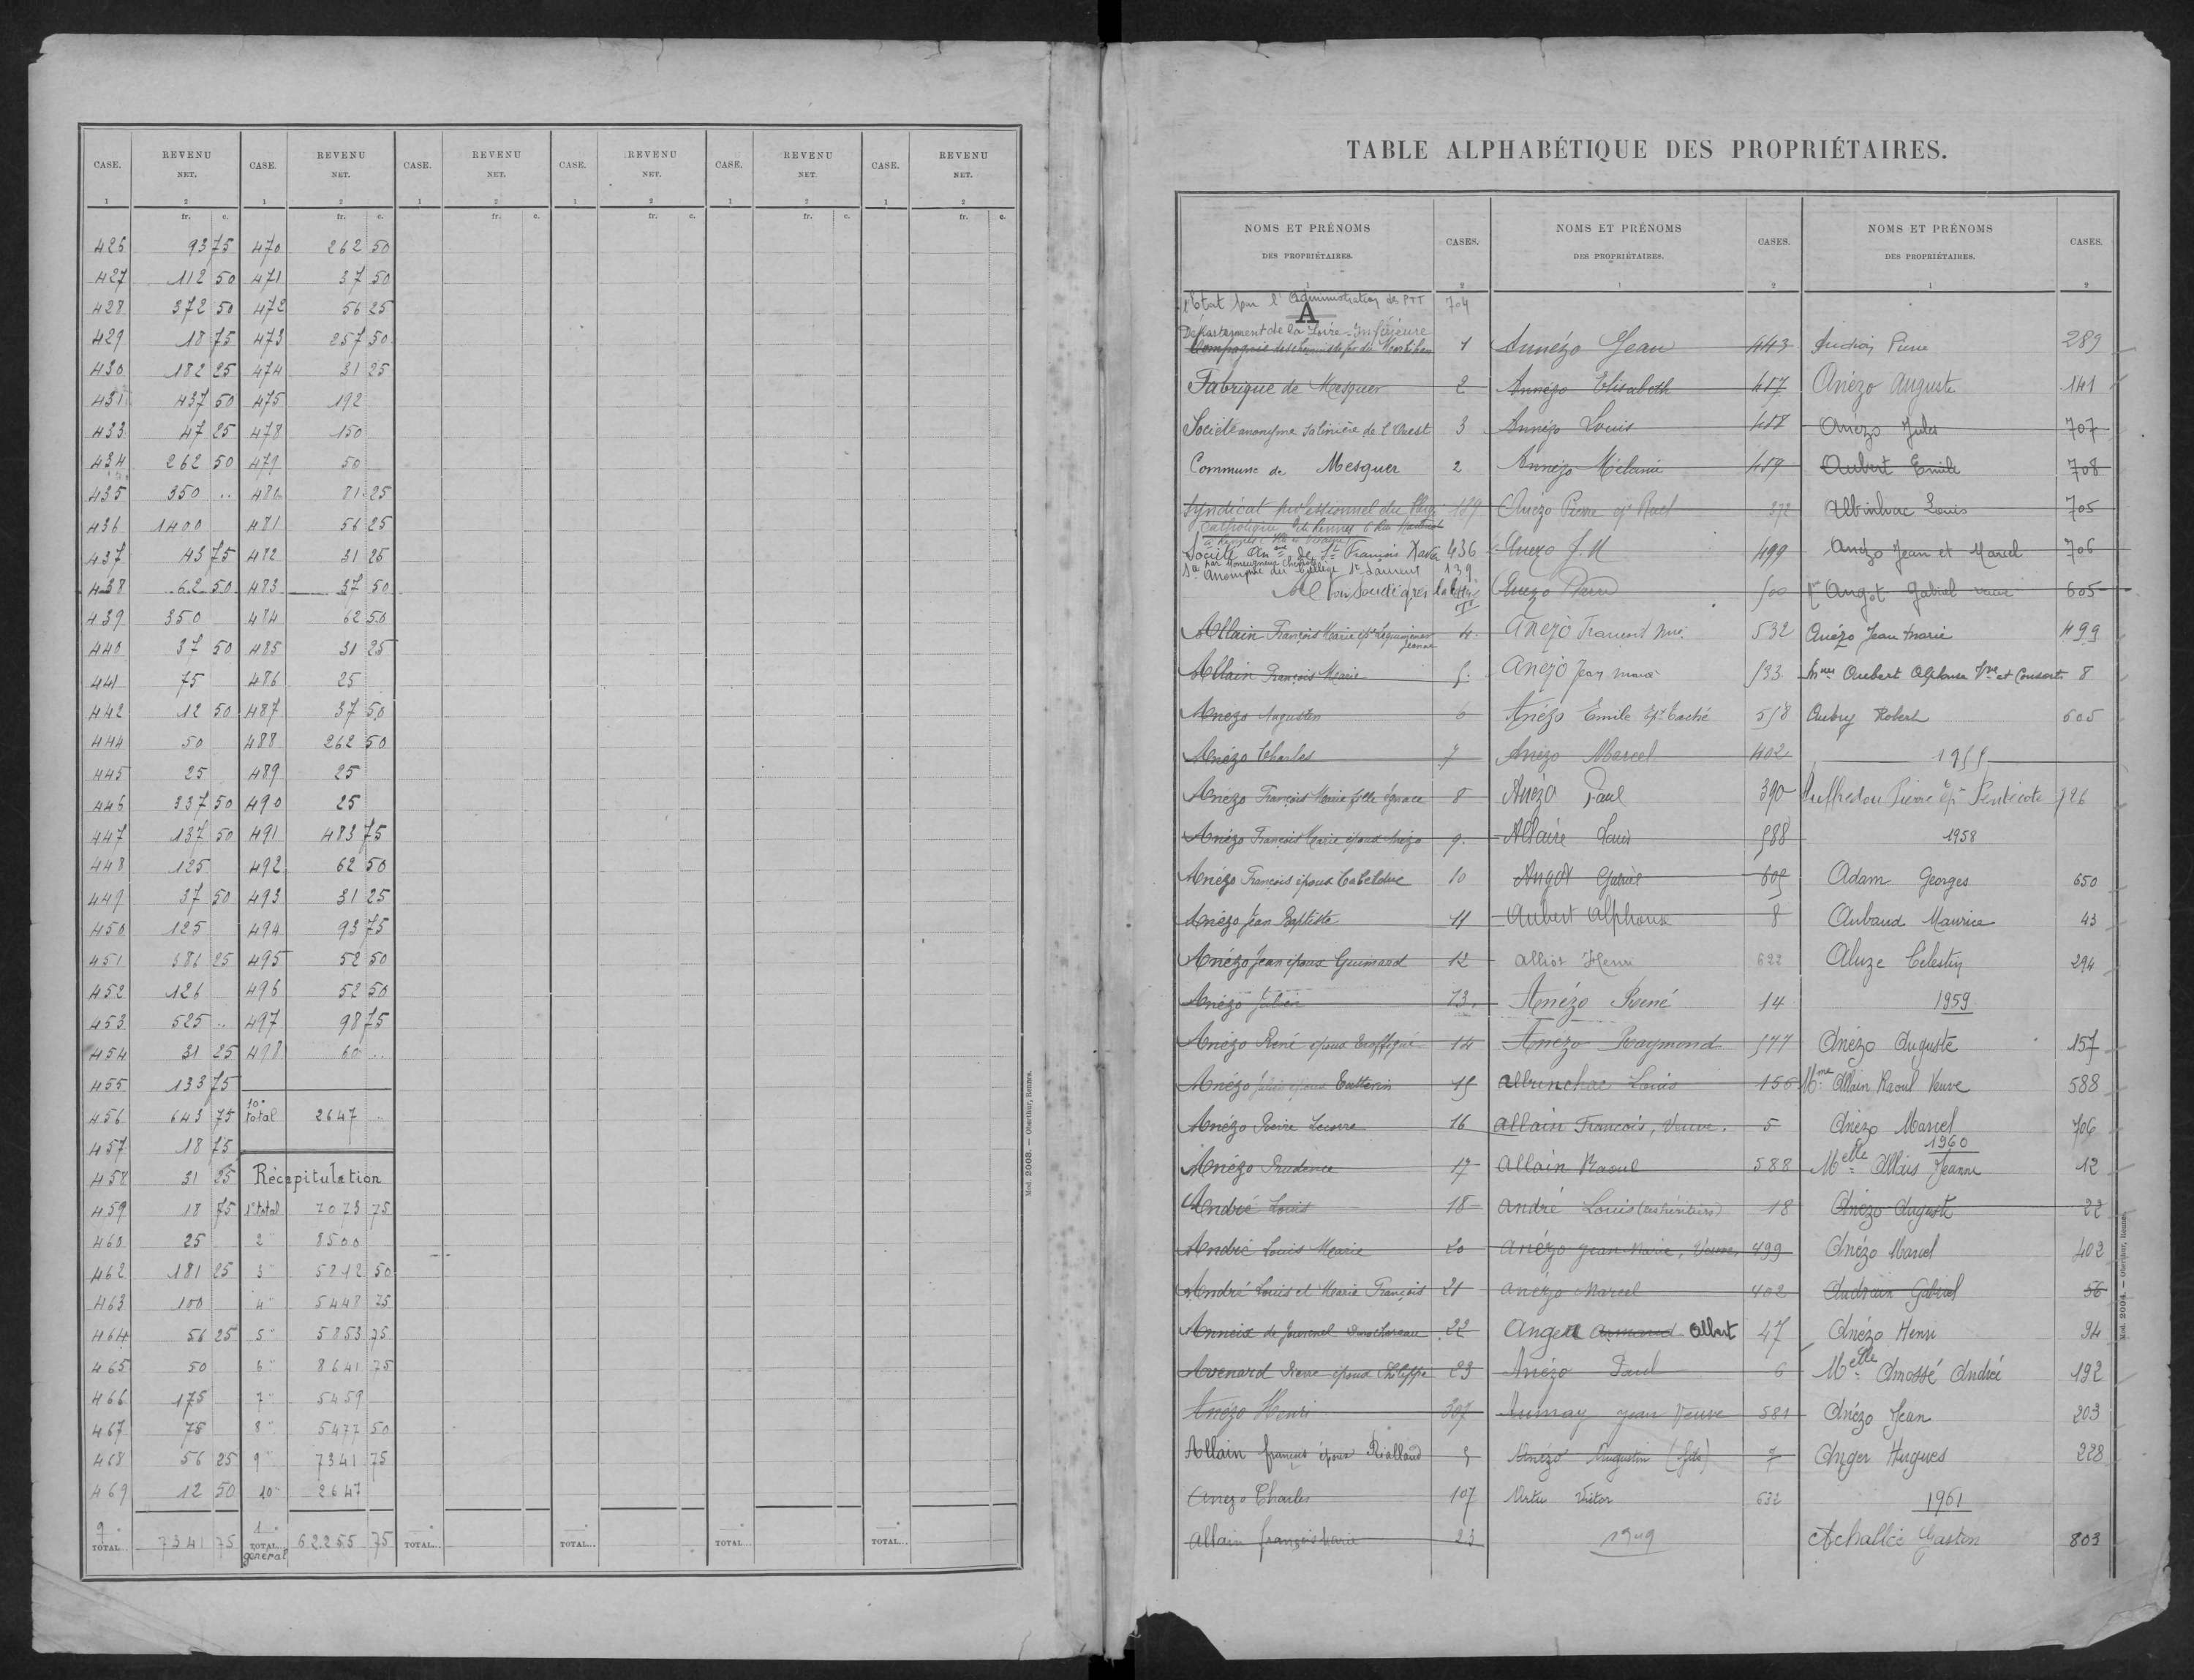 CASE. REVENU NET. CASE. REVENU NET. CASE. REVENU NET. CASE. REVENU NET. CASE. REVENU NET. CASE. REVENU NET.
1 2 1 2 1 2 1 2 1 2 1 2
fr. c. fr. c. fr. c. fr. c. fr. c. fr. c.
426 93 75 470 262 50
427 112 50 471 37 50
428 372 50 472 56 25
429 18 75 473 257 50
430 182 25 474 31 25
431 437 50 475 192
433 47 25 478 150
434 262 50 479 50
435 350 .. 480 81 25
436 1400 481 56 25
437 43 75 482 31 25
438 62 50 483 37 50
439 350 484 62 50
440 37 50 485 31 25
441 75 486 25
442 12 50 487 37 50
444 50 488 262 50
445 25 489 25
446 337 50 490 25
447 137 50 491 483 75
448 125 492 62 50
449 37 50 493 31 25
450 125 494 93 75
451 381 25 495 52 50
452 126 496 52 50
453 525 .. 497 98 75
454 31 25 498 60 ..
455 133 75
456 643 75 10e total 2647 ..
457 18 75
458 31 25 Récapitulation
459 18 75 1er total 7073 75
460 25 2" 8500
462 181 25 3" 5212 50
463 100 4" 5448 75
464 56 25 5" 5853 75
465 50 6" 8641 75
466 175 7" 5459
467 75 8" 5477 50
468 56 25 9" 7341 75
469 12 50 10" 2647
9e TOTAL... 7341 75 TOTAL general 62255 75 TOTAL... TOTAL... TOTAL... TOTAL...
Mod. 2008. — Oberthur, Rennes.
TABLE ALPHABÉTIQUE DES PROPRIÉTAIRES.
NOMS ET PRÉNOMS DES PROPRIÉTAIRES. CASES. NOMS ET PRÉNOMS DES PROPRIÉTAIRES. CASES. NOMS ET PRÉNOMS DES PROPRIÉTAIRES. CASES.
1 2 1 2 1 2
l'Etat par l'Administration des PTT 704
A
Département de la Loire-Inférieure
Compagnie des chemins de fer du Morbihan 1
Fabrique de Mesquer 2
Société anonyme salinière de l'Ouest 3
Commune de Mesquer 2
Syndicat professionnel du 139
Catholique de Rennes
Société An me de St François Xavier 436
par Monseigneur
Sté Anonyme du Collège St Laurent 139
Allain François Marie 4
Allain François Marie 5
Anezo Augustin 6
Anézo Charles 7
Anézo François Marie fille Ignace 8
Anézo François Marie époux Anézo 9
Anezo François époux Cabelduc 10
Anézo Jean Baptiste 11
Anézo Jean époux Guimard 12
Anézo Julien 13
Anézo René époux 14
Anézo 15
Anézo Pierre Lecorre 16
Anézo Prudence 17
André Louis 18
André Louis Marie 20
André Louis et Marie François 21
Anneix de 22
Avenard René époux Philippe 23
Anézo Henri 307
Allain françois époux Rialland 5
Anezo Charles 107
Allain françois Marie 23
Annézo Jean 443
Annézo Elisabeth 417
Annézo Louis 418
Annézo Mélanie 419
Anézo Pierre 372
Anezo J. M 499
Anezo 500
Anézo 532
Anézo Jean Marie 533
Anézo Emile 518
Anézo Marcel 402
Anézo Paul 390
Allaire Louis 588
Angot Gabriel 605
Aubert Alphonse 8
Alliot Henri 622
Anézo René 14
Anézo Raymond 577
Albrinchac Louis 156
Allain François, Veuve. 5
Allain Raoul 588
André Louis (es héritiers) 18
Anézo Jean-Marie, Veuve 499
Anézo Marcel 402
Ange Armand Albert 47
Anézo Paul 6
Aumay Jean Veuve 581
Anézo Augustin (fils) 7
Artu Victor 632
1949
Pierre 289
Anézo Auguste 141
Anézo Jules 707
Aubert Emile 708
Louis 705
Anézo Jean et Marcel 706
Angot Gabriel 605
Anézo Jean Marie 499
Aubert Alphonse Vve et Consorts 8
Aubry Robert 605
1955
Auffredou Pierre ép. Pentecote 726
1958
Adam Georges 650
Aubaud Maurice 43
Aluze Celestin 294
1959
Anézo Auguste 157
Mme Allain Raoul Veuve 588
Anézo Marcel 706
1960
Melle Allais Jeanne 12
Anézo Auguste 22
Anézo Marcel 402
Audrain Gabriel 56
Anézo Henri 94
Melle Amossé Andrée 192
Anézo Jean 203
Anger Hugues 228
1961
Achallié Gaston 803
Mod. 2004. — Oberthur, Rennes.